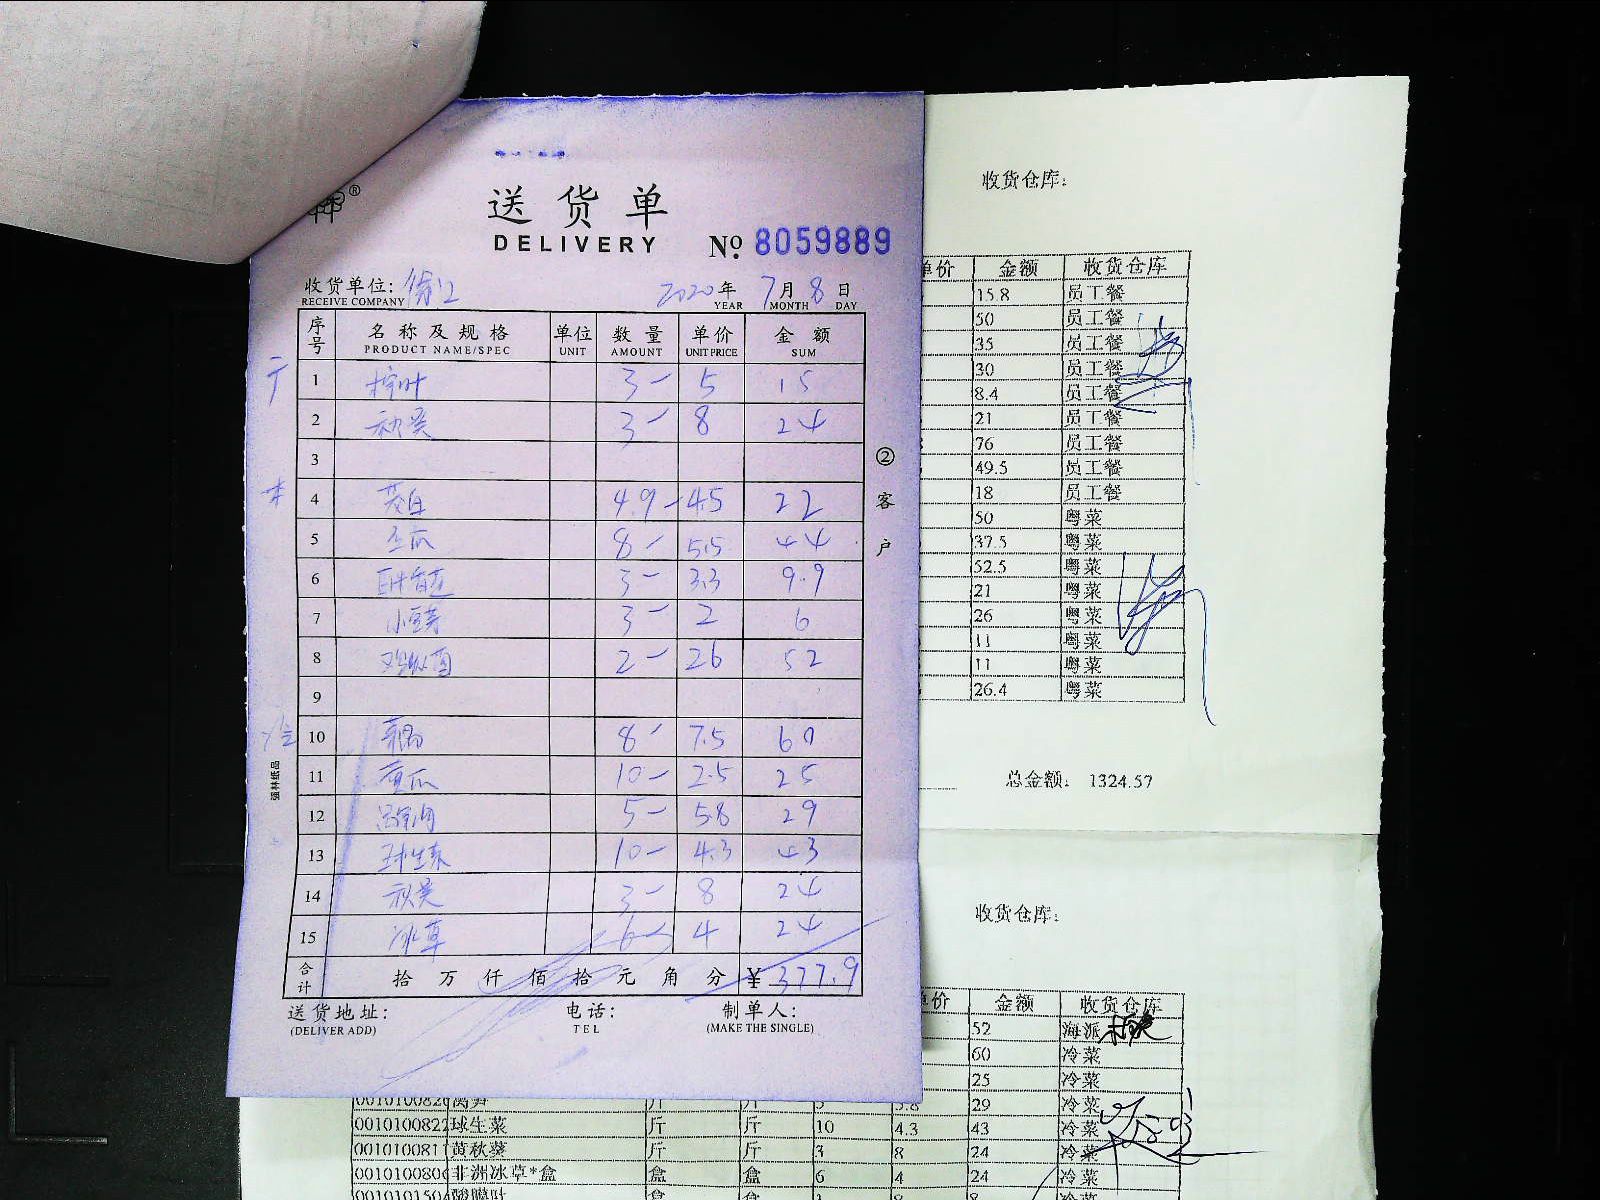 送货单
DELIVERY
№ 8059889
收货单位:
RECEIVE COMPANY
2020年 7月 8日
YEAR MONTH DAY
序号 名称及规格 单位 数量 单价 金额
PRODUCT NAME/SPEC UNIT AMOUNT UNIT PRICE SUM
1 3 5 15
2 秋葵 3 8 24
3
4 茭白 4.9 4.5 22
5 8 5.5 44
6 3 3.3 9.9
7 小豆芽 3 2 6
8 2 26 52
9
10 8 7.5 60
11 黄瓜 10 2.5 25
12 5 5.8 29
13 球生菜 10 4.3 43
14 秋葵 3 8 24
15 冰草 6 4 24
合计 拾万仟佰拾元角分 ¥ 377.9
送货地址: 电话: 制单人:
(DELIVER ADD) TEL (MAKE THE SINGLE)
②客户
强林纸品
收货仓库:
单价 金额 收货仓库
15.8 员工餐
50 员工餐
35 员工餐
30 员工餐
8.4 员工餐
21 员工餐
76 员工餐
49.5 员工餐
18 员工餐
50 粤菜
37.5 粤菜
52.5 粤菜
21 粤菜
26 粤菜
11 粤菜
11 粤菜
26.4 粤菜
总金额: 1324.57
收货仓库:
单价 金额 收货仓库
52 海派
60 冷菜
25 冷菜
莴笋 斤 斤 5 5.8 29 冷菜
球生菜 斤 斤 10 4.3 43 冷菜
黄秋葵 斤 斤 3 8 24 冷菜
非洲冰草*盒 盒 盒 6 4 24 冷菜